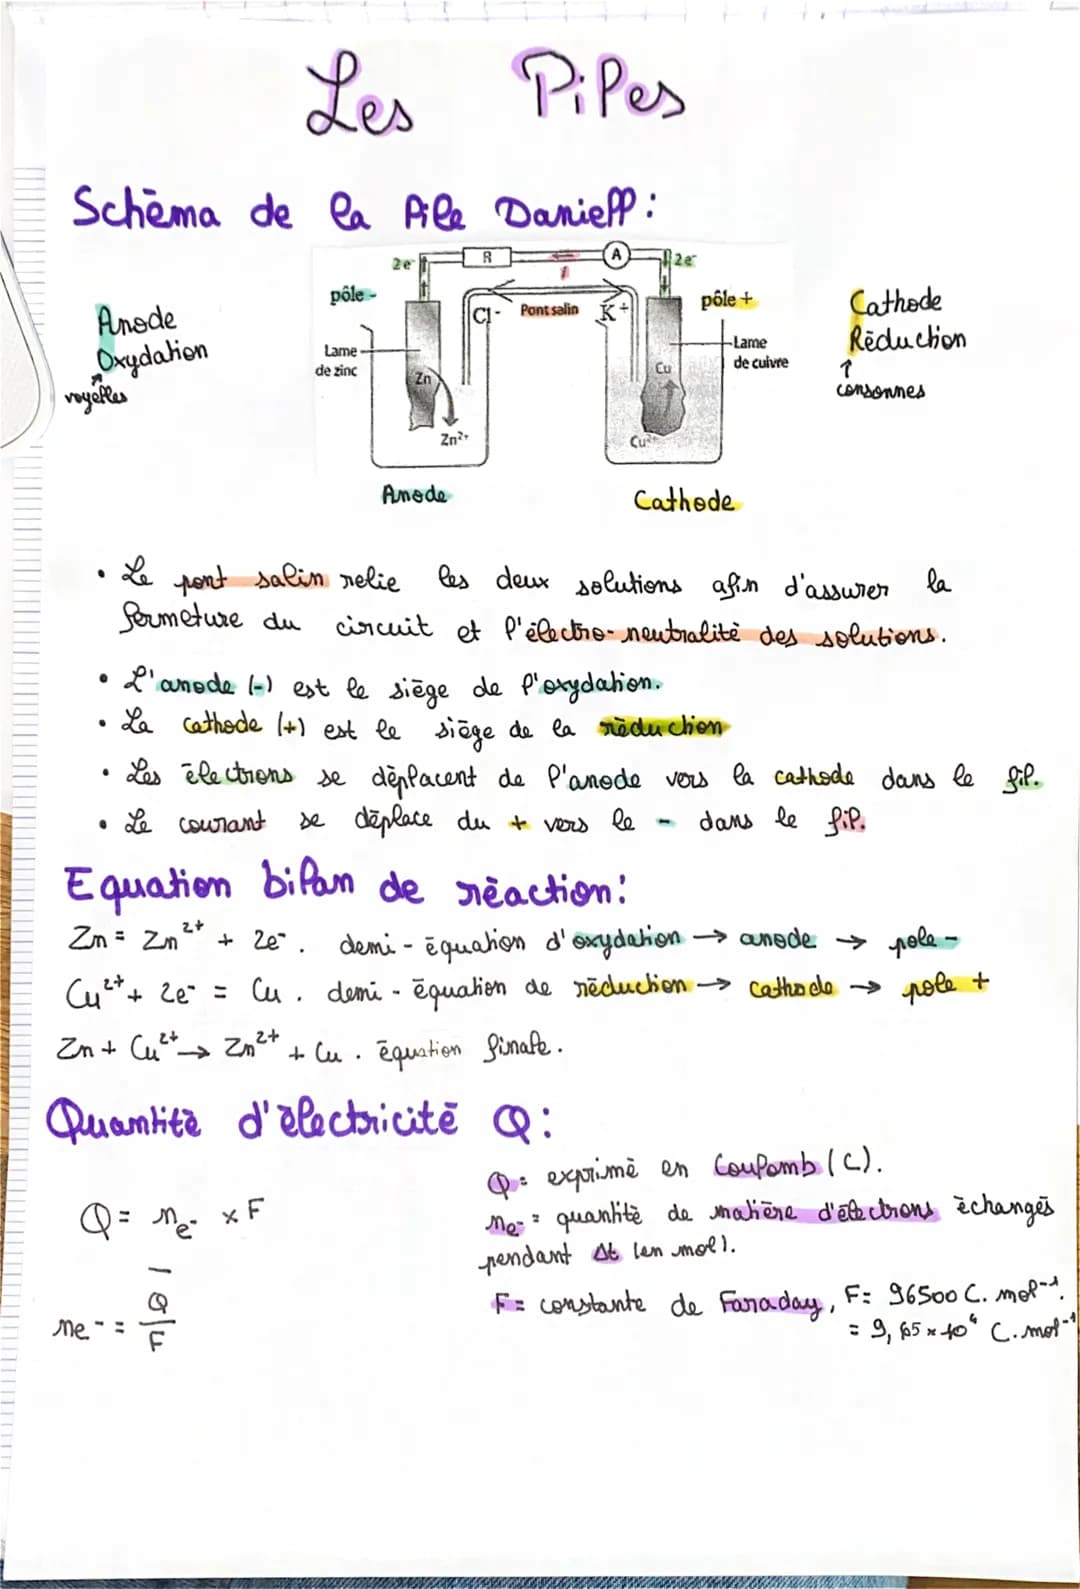 Les Piles
Schéma de la Pile Daniell :
2e⁻ R A 2e⁻
I
pôle - Cl⁻ Pont salin K⁺ pôle +
Anode
Oxydation
voyelles
Cathode
Réduction
consonnes
Lame
de zinc
Zn
Zn²⁺
Lame
de cuivre
Cu
Cu²⁺
Anode Cathode
• Le pont salin relie les deux solutions afin d'assurer la
fermeture du circuit et l'électro-neutralité des solutions.
• L'anode (-) est le siège de l'oxydation.
• La cathode (+) est le siège de la réduction
• Les électrons se déplacent de l'anode vers la cathode dans le fil.
• Le courant se déplace du + vers le - dans le fil.
Equation bilan de réaction :
Zn = Zn²⁺ + 2e⁻. demi-équation d'oxydation → anode → pole -
Cu²⁺ + 2e⁻ = Cu. demi-équation de réduction → cathode → pole +
Zn + Cu²⁺ → Zn²⁺ + Cu. équation finale.
Quantité d'électricité Q :
Q = exprimé en Coulomb (C).
Q = ne⁻ × F
ne⁻ = quantité de matière d'électrons échangés
pendant Δt (en mol).
ne⁻ = Q/F
F = constante de Faraday, F = 96500 C.mol⁻¹.
= 9,65 × 10⁴ C.mol⁻¹